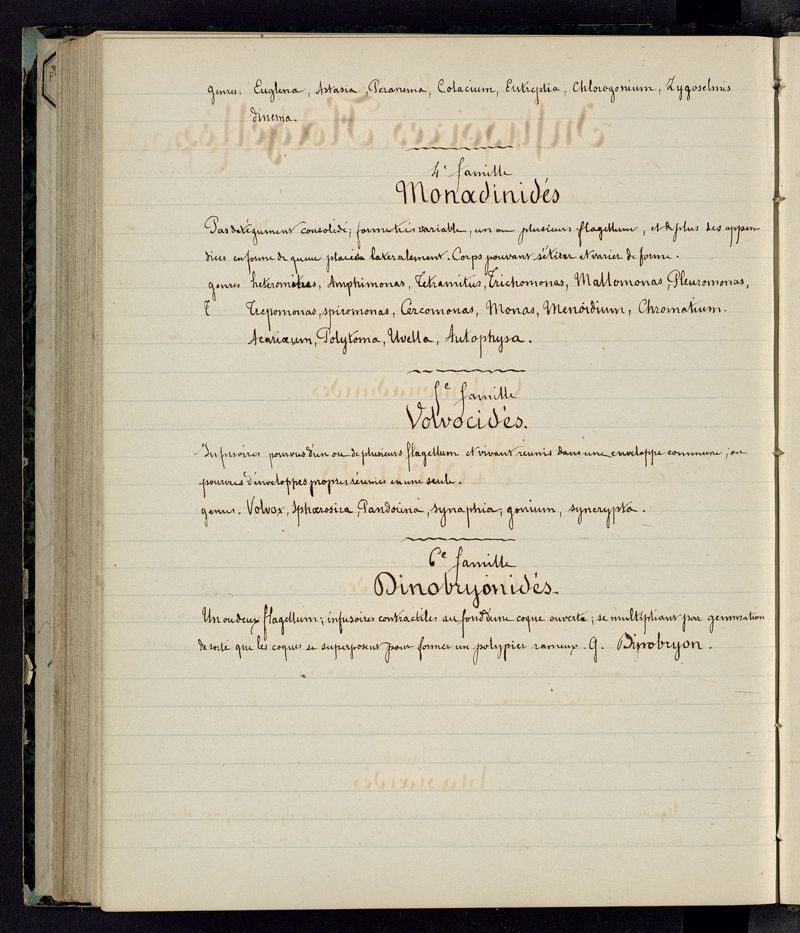 genres: Euglena, Astasia, Peranema, Colacium, Eutreptia, Chlorogonium, Zygoselmis
dinema.
4e famille
Monadinidés
Pas de tégument consolidé; forme très variable, un ou plusieurs flagellum, et de plus des appen-
dices en forme de queue placés latéralement. Corps pouvant s'étirer et varier de forme.
genres heteromitas, Amphimonas, Tetramitus, Trichomonas, Mallomonas, Pleuromonas,
Trepomonas, spiromonas, Cercomonas, Monas, Menoïdium, Chromatium.
Acariæum, Polytoma, Uvella, Autophysa.
5e famille
Volvocidés.
Infusoires pourvus d'un ou de plusieurs flagellum et vivant réunis dans une enveloppe commune; ou
pourvus d'enveloppes propres réunies en une seule.
genres. Volvox, Sphærosira, Pandorina, synaphia, gonium, syncrypta.
6e famille
Dinobryonidés.
Un ou deux flagellum; infusoires contractiles au fond d'une coque ouverte; se multipliant par gemmation
de sorte que les coques se superposent pour former un polypier rameux. G. Dinobryon.